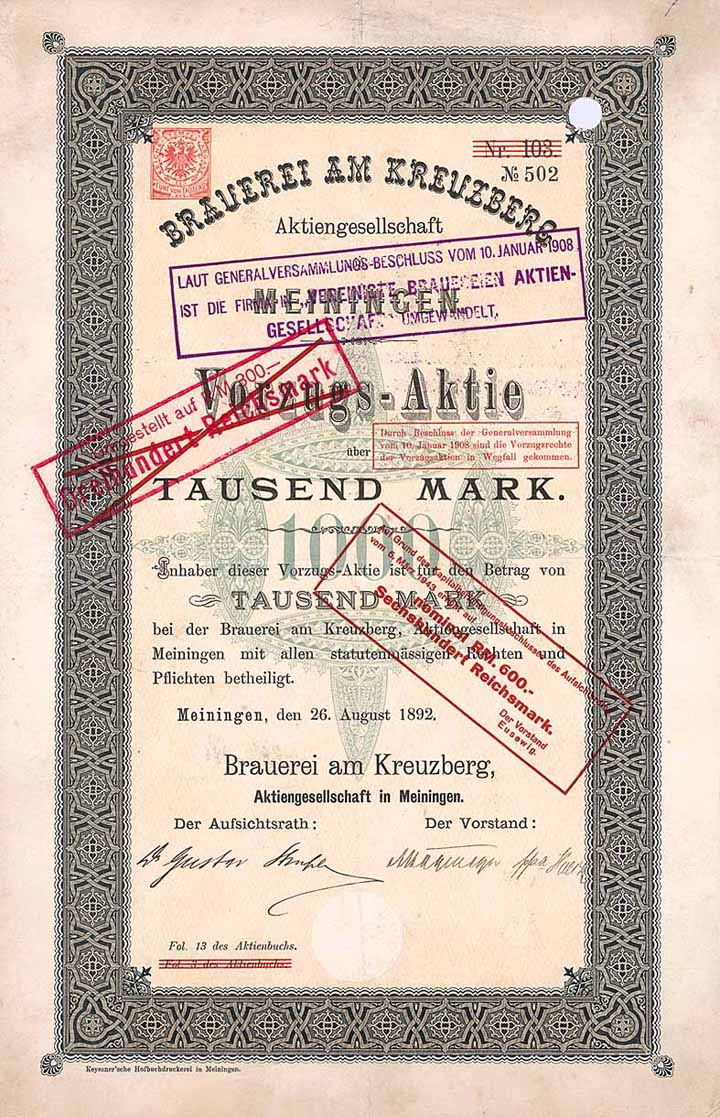 Nr. 103
№ 502
FÜNF VOM TAUSEND
BRAUEREI AM KREUZBERG
Aktiengesellschaft
IN
MEININGEN.
LAUT GENERALVERSAMMLUNGS-BESCHLUSS VOM 10. JANUAR 1908
IST DIE FIRMA IN „VEREINIGTE BRAUEREIEN AKTIEN-
GESELLSCHAFT" UMGEWANDELT.
Vorzugs-Aktie
Umgestellt auf R.M. 300.—
Dreihundert Reichsmark
über
Durch Beschluss der Generalversammlung
vom 10. Januar 1908 sind die Vorzugsrechte
der Vorzugsaktien in Wegfall gekommen.
TAUSEND MARK.
1000
Inhaber dieser Vorzugs-Aktie ist für den Betrag von
TAUSEND MARK
bei der Brauerei am Kreuzberg, Aktiengesellschaft in
Meiningen mit allen statutenmässigen Rechten und
Pflichten betheiligt.
Auf Grund des Kapitalberichtigungsbeschlusses des Aufsichtsrats
vom 6. März 1943 erhöht auf
nominell RM. 600.-
Sechshundert Reichsmark.
Der Vorstand
Eusewig.
Meiningen, den 26. August 1892.
Brauerei am Kreuzberg,
Aktiengesellschaft in Meiningen.
Der Aufsichtsrath:
Der Vorstand:
Dr Gustav
ppa
Fol. 13 des Aktienbuchs.
Fol. 3 des Aktienbuchs.
Keyssner'sche Hofbuchdruckerei in Meiningen.